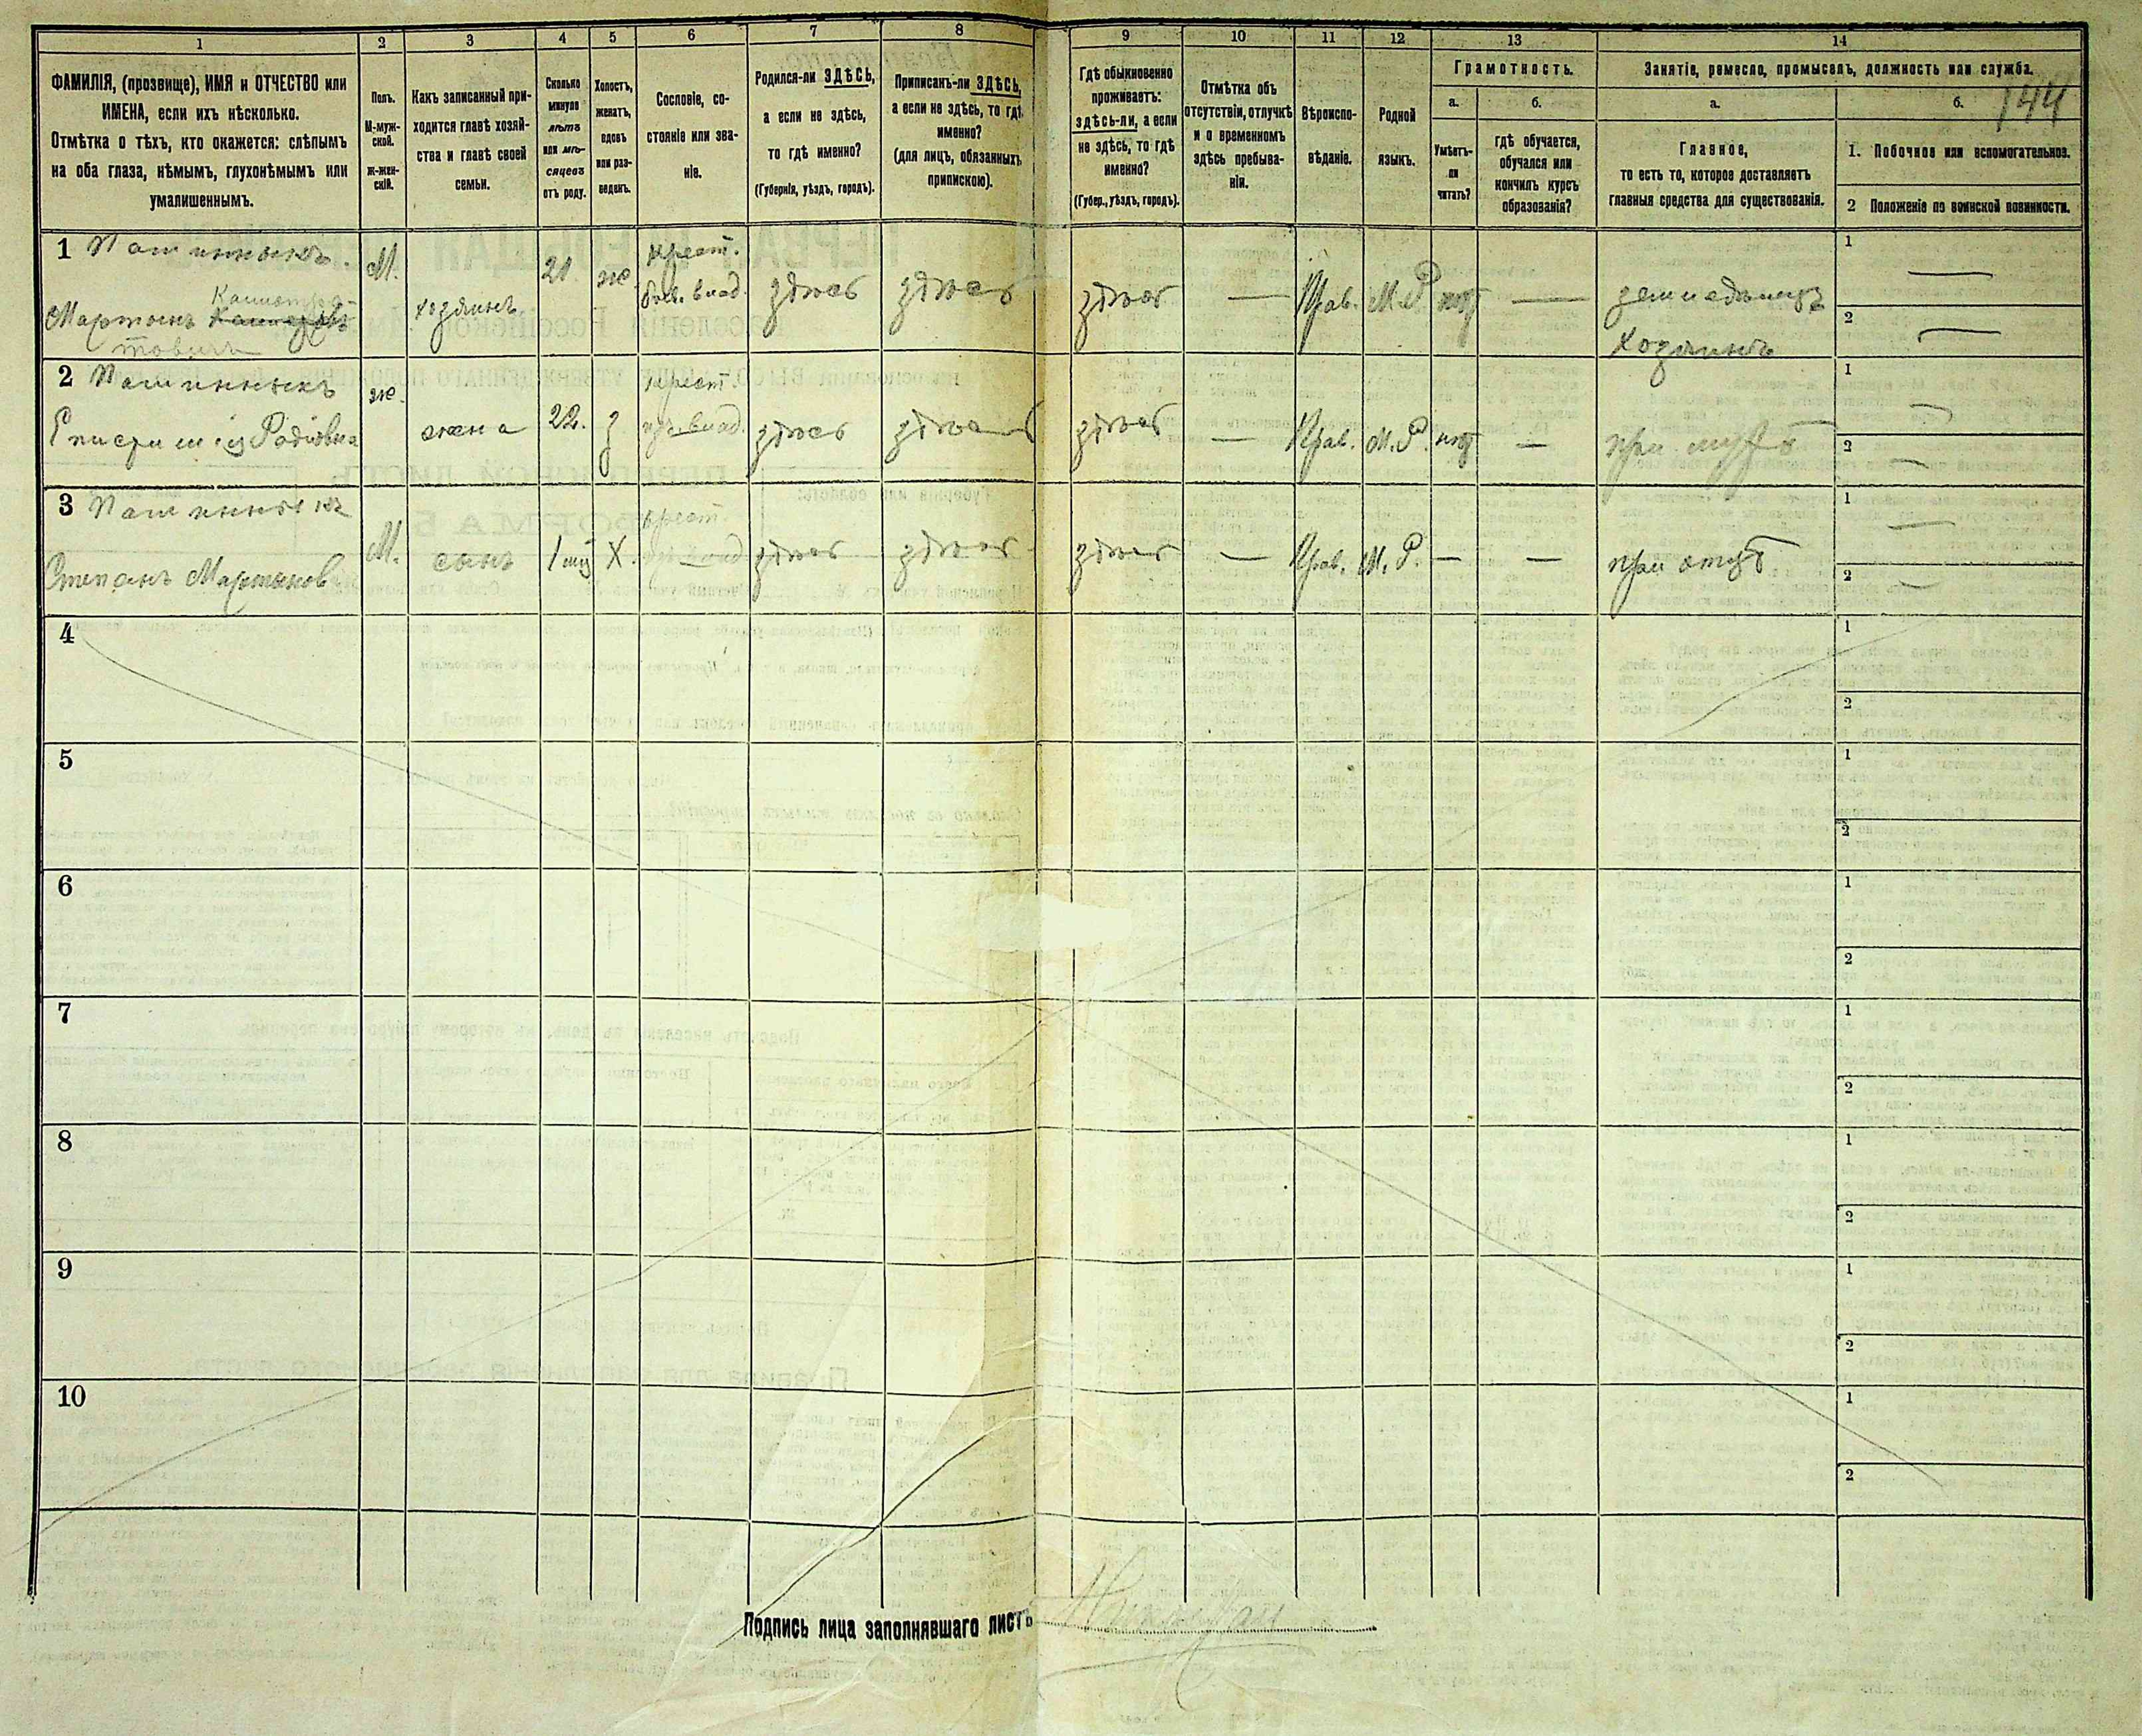 1 2 3 4 5 6 7 8 9 10 11 12 13 14
ФАМИЛІЯ, (прозвище), ИМЯ и ОТЧЕСТВО или
ИМЕНА, если ихъ нѣсколько.
Отмѣтка о тѣхъ, кто окажется: слѣпымъ
на оба глаза, нѣмымъ, глухонѣмымъ или
умалишеннымъ.
Полъ.
М-муж-
ской.
Ж-жен-
скій.
Какъ записанный при-
ходится главѣ хозяй-
ства и главѣ своей
семьи.
Сколько
минуло
лѣтъ
или мѣ-
сяцевъ
отъ роду.
Холостъ,
женатъ,
вдовъ
или раз-
веденъ.
Сословіе, со-
стояніе или зва-
ніе.
Родился-ли ЗДѢСЬ,
а если не здѣсь,
то гдѣ именно?
(Губернія, уѣздъ, городъ).
Приписанъ-ли ЗДѢСЬ,
а если не здѣсь, то гдѣ
именно?
(для лицъ, обязанныхъ
припискою).
Гдѣ обыкновенно
проживаетъ:
здѣсь-ли, а если
не здѣсь, то гдѣ
именно?
(Губер., уѣздъ, городъ).
Отмѣтка объ
отсутствіи, отлучкѣ
и о временномъ
здѣсь пребыва-
ніи.
Вѣроиспо-
вѣданіе.
Родной
языкъ.
Грамотность.
а.
Умѣетъ-
ли
читать?
б.
гдѣ обучается,
обучался или
кончилъ курсъ
образованія?
Занятіе, ремесло, промыселъ, должность или служба.
а.
Главное,
то есть то, которое доставляетъ
главныя средства для существованія.
б.
144
1. Побочное или вспомогательное.
2 Положеніе по воинской повинности.
1
Мартынъ
М.
хозяинъ
21
ж
крест.
здѣсь
здѣсь
здѣсь
—
Прав.
М.Р.
нѣт
—
земледѣлецъ
хозяинъ
1 —
2 —
2
Ж.
жена
22.
з
крест.
здѣсь
здѣсь
здѣсь
—
Прав.
М.Р.
нѣт
—
при мужѣ
1 —
2 —
3
Степанъ Мартынов
М.
сынъ
1 мѣ
Х.
крест.
здѣсь
здѣсь
здѣсь
—
Прав.
М.Р.
—
—
при отцѣ
1 —
2 —
4
1
2
5
1
2
6
1
2
7
1
2
8
1
2
9
1
2
10
1
2
Подпись лица заполнявшаго листъ